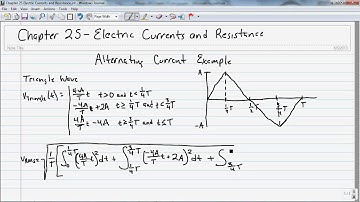 Chapter 25 Electric Currents and Resistance - Windows Journal
File Edit View Insert Actions Tools Help
Note Title
Chapter 25 - Electric Currents and Resistance
Alternating Current Example
Triangle Wave
V_triangle(t) = { 4A/T t t≥0 and t≤ 1/4 T
-4A/T t+2A t≥ 1/4 T and t≤ 3/4 T
4A/T t - 4A t≥ 3/4 T and t≤T
A
-A
1/4 T
1/2 T
3/4 T
T
V_RMS = √ 1/T [ ∫_0^{1/4 T} (4A/T t)² dt + ∫_{1/4 T}^{3/4 T} (-4A/T t + 2A)² dt + ∫_{3/4 T}